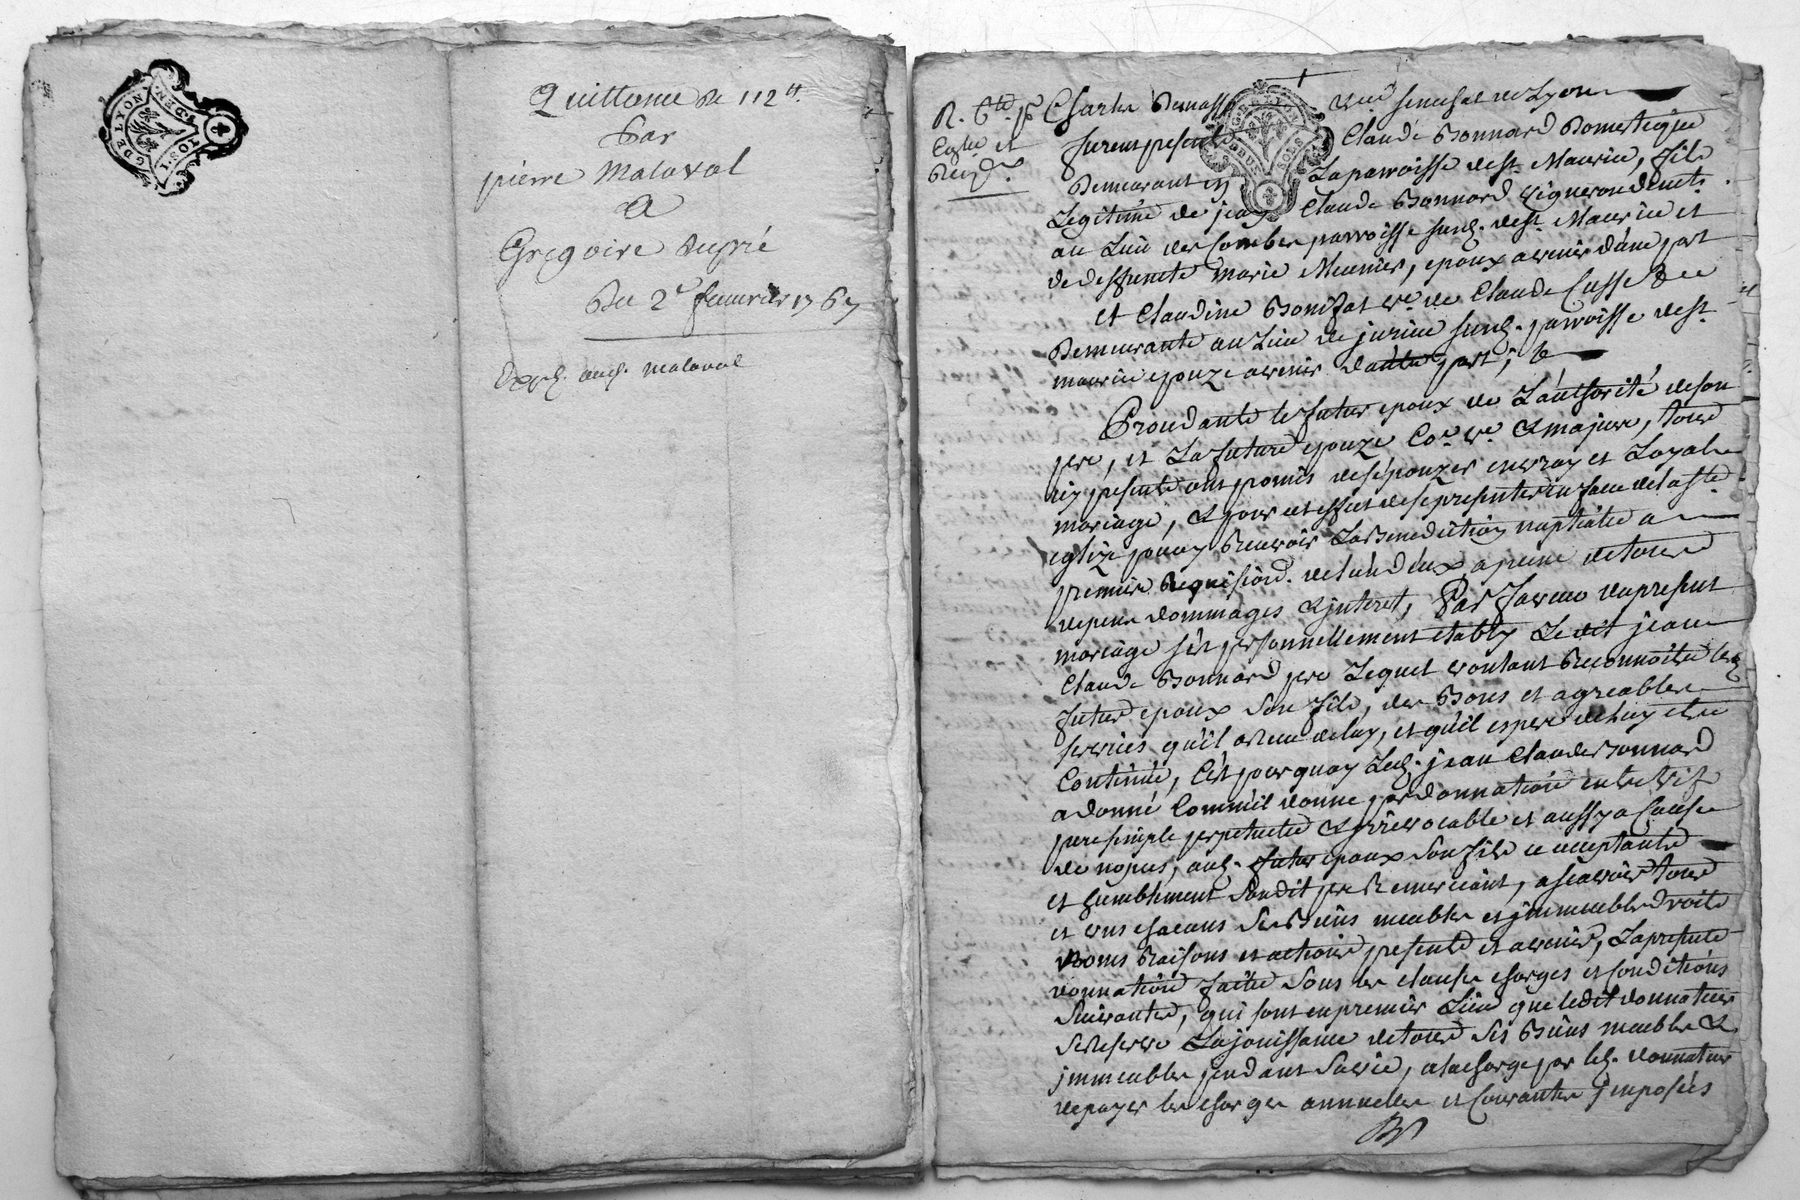 G DE LYON
2 SOLS 1 DEN.
Quittance de 112 tt.
Par
pierre Malaval
A
Gregoire dupré
Du 2e feuvrier 1767
Exp. aud. malaval
vue senechal de Lyon
furent presents Claude Bonnard Domestique
Demeurant en La parroisse de st. Maurice, fils
Legitime de jean Claude Bonnard vigneron demt.
au Lieu des Combes parroisse susd. de st. Maurice et
de deffunte marie Meunier, epoux avenir d'une part
et Claudine Bonifat ve. de Claude Cusset
Demeurante au Lieu de jurieu susd. parroisse de st.
maurice epouze avenir d'autre part; Le
Procedante le futur epoux de L'authorité de son
pere, et La future epouze Co.e ve. & majeure, tous
icy presents ont promis de s'épouzer en vray et Loyal
mariage, & pour cet effet de se presenter en face de la ste
eglize pour y Recevoir La Benediction nuptialle a
premiere Requisition de L'un d'eux a peine de tous
depens dommages & jnteret, Par faveur du present
mariage s'est personnellement etably Le dit jean
Claude Bonnard pere Lequel voulant Reconnoitre les
futur epoux son fils, des Bons et agreables
services qu'il a Receu de luy, et qu'il espere de luy etre
Continué, C'est pourquoy Led. jean Claude Bonnard
a donné Comme il donne par donnation entre vifs
pure simple perpetuelle & jrrevocable et aussy a Cause
de nopces, aud. futur epoux son fils ce acceptant
et humblement sondit pere Remerciant, a scavoir tous
et uns chacuns ses Biens meubles et jmmeubles droits
noms Raisons et actions presents et avenir, La presente
donnation faite sous les clauses charges et conditions
suivantes, qui sont en premier Lieu que ledit donnateur
se Reserve La jouissance de tous ses Biens meubles &
jmmeubles pendant sa vie, a la charge par led. donnateur
de payer les charges annuelles et Courantes jmposées